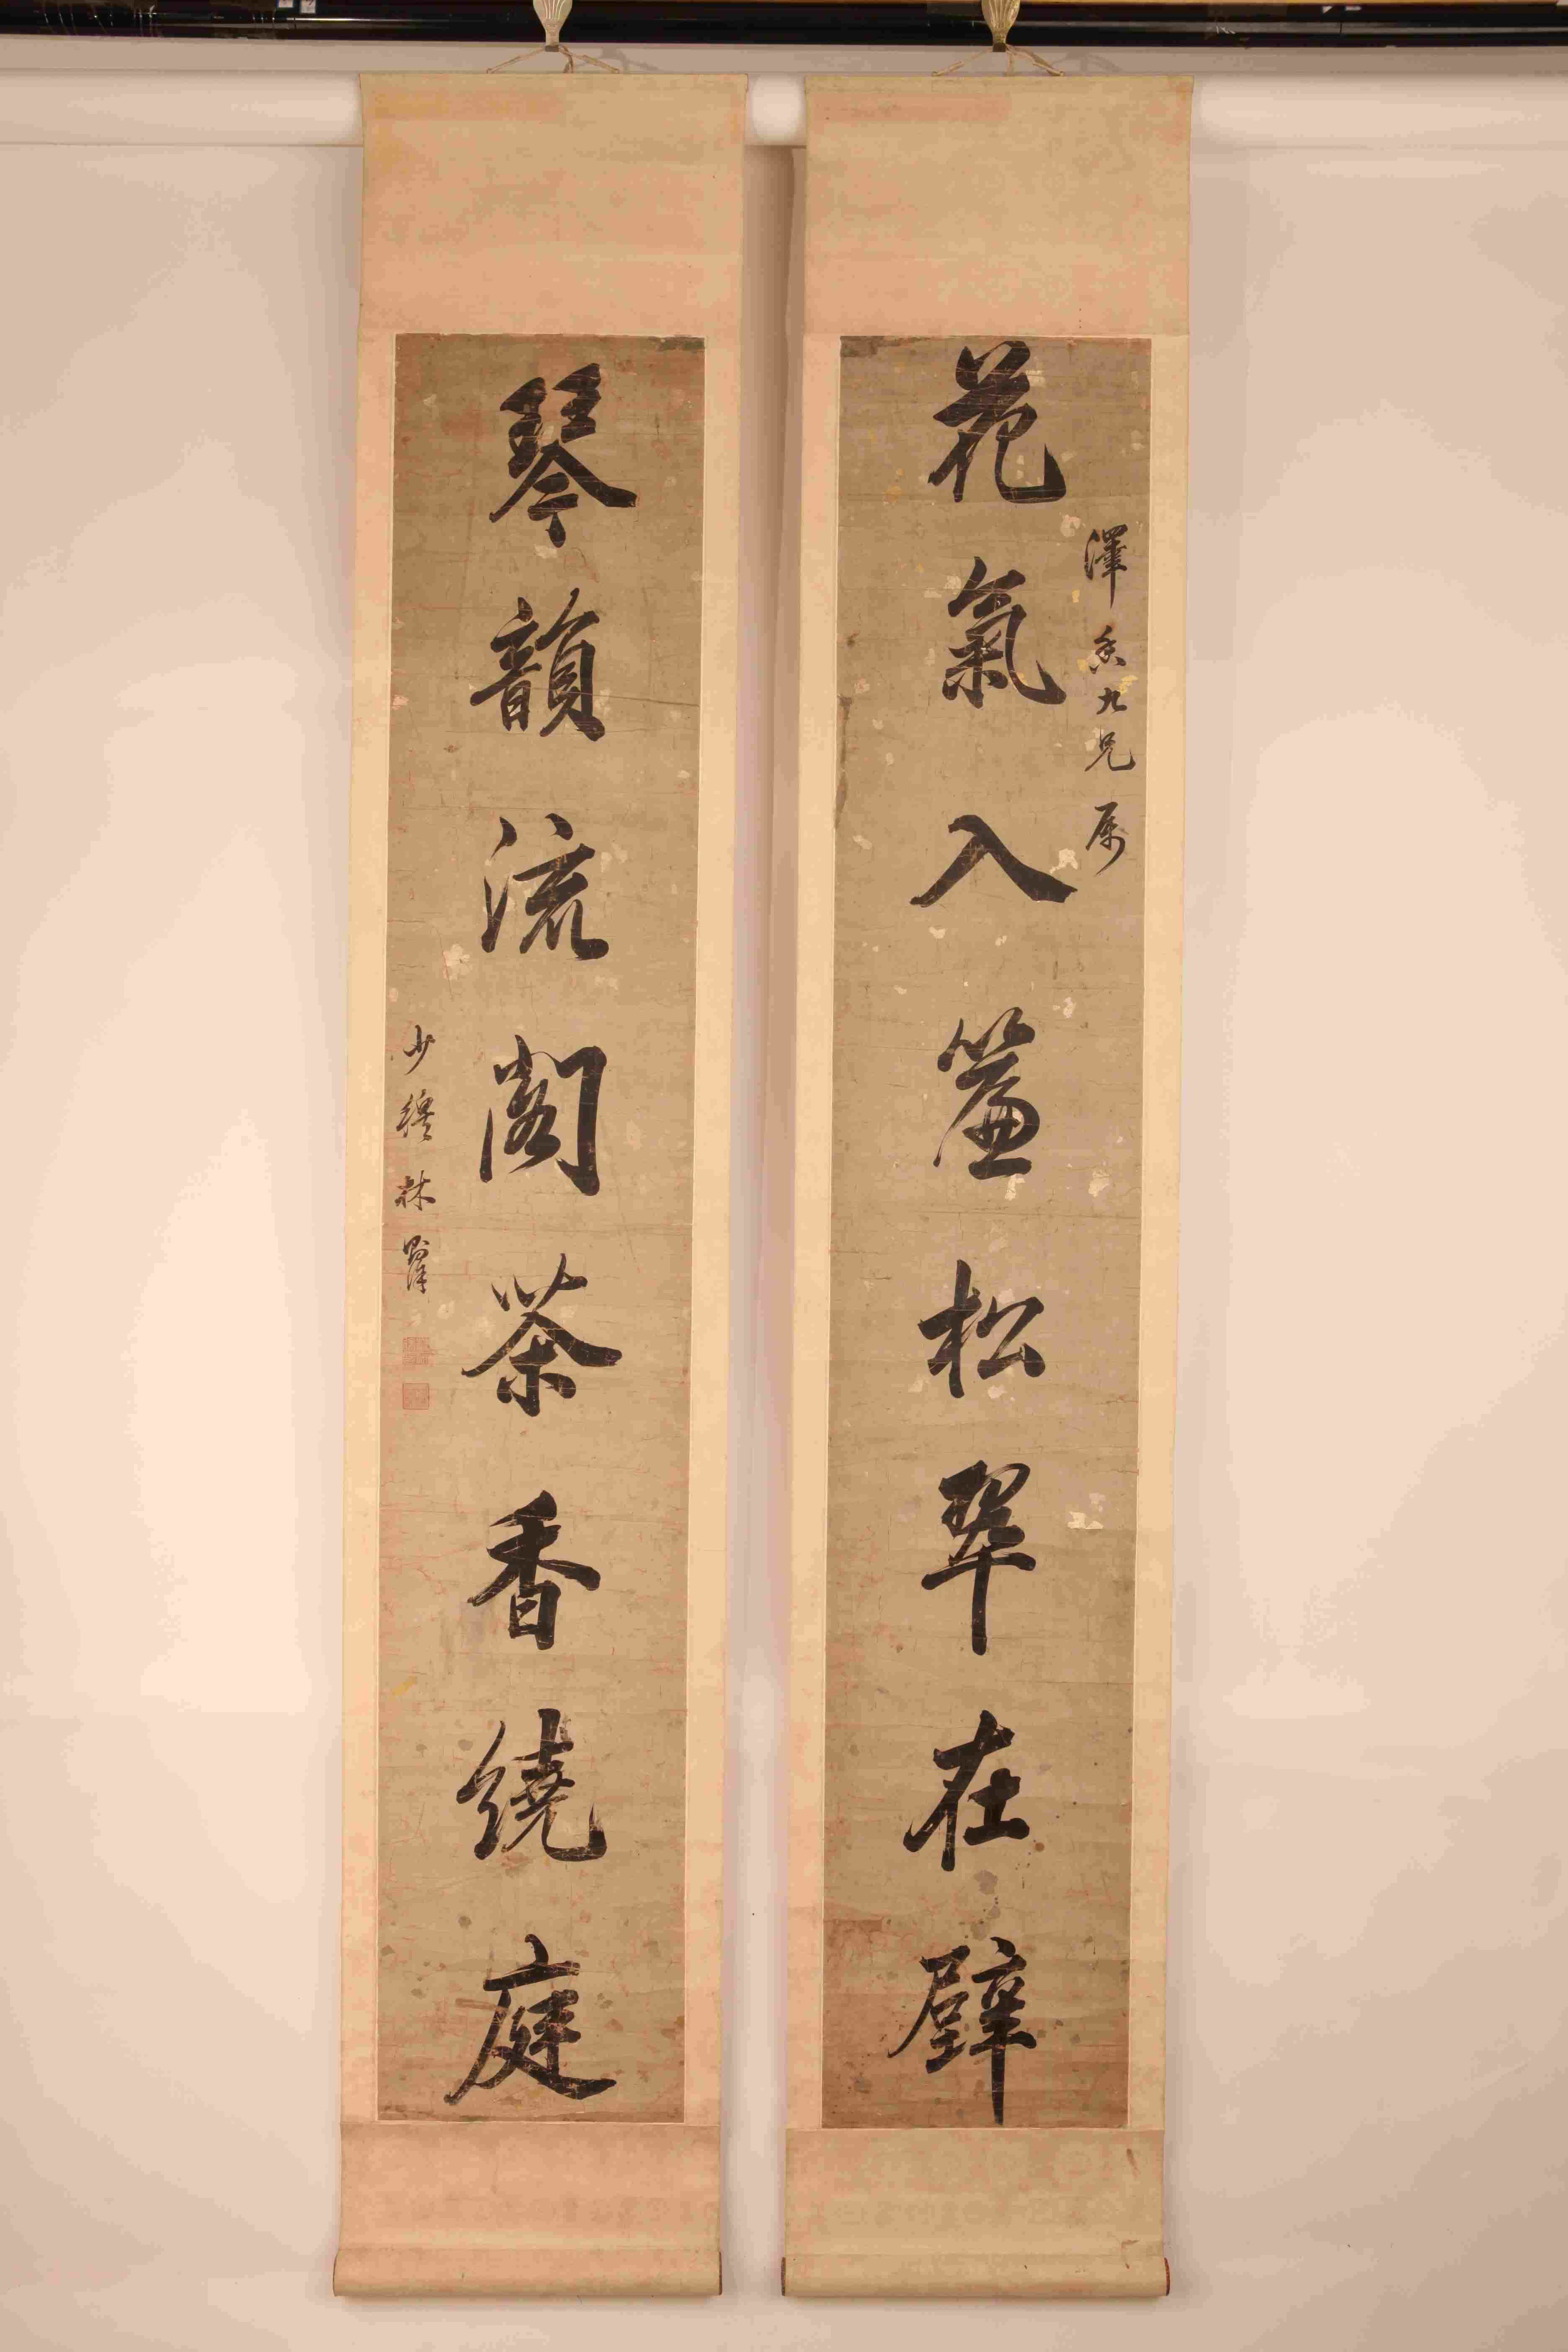 花氣入簾松翠在壁
澤九兄属
琴韻流閣茶香繞庭
少穆林則徐